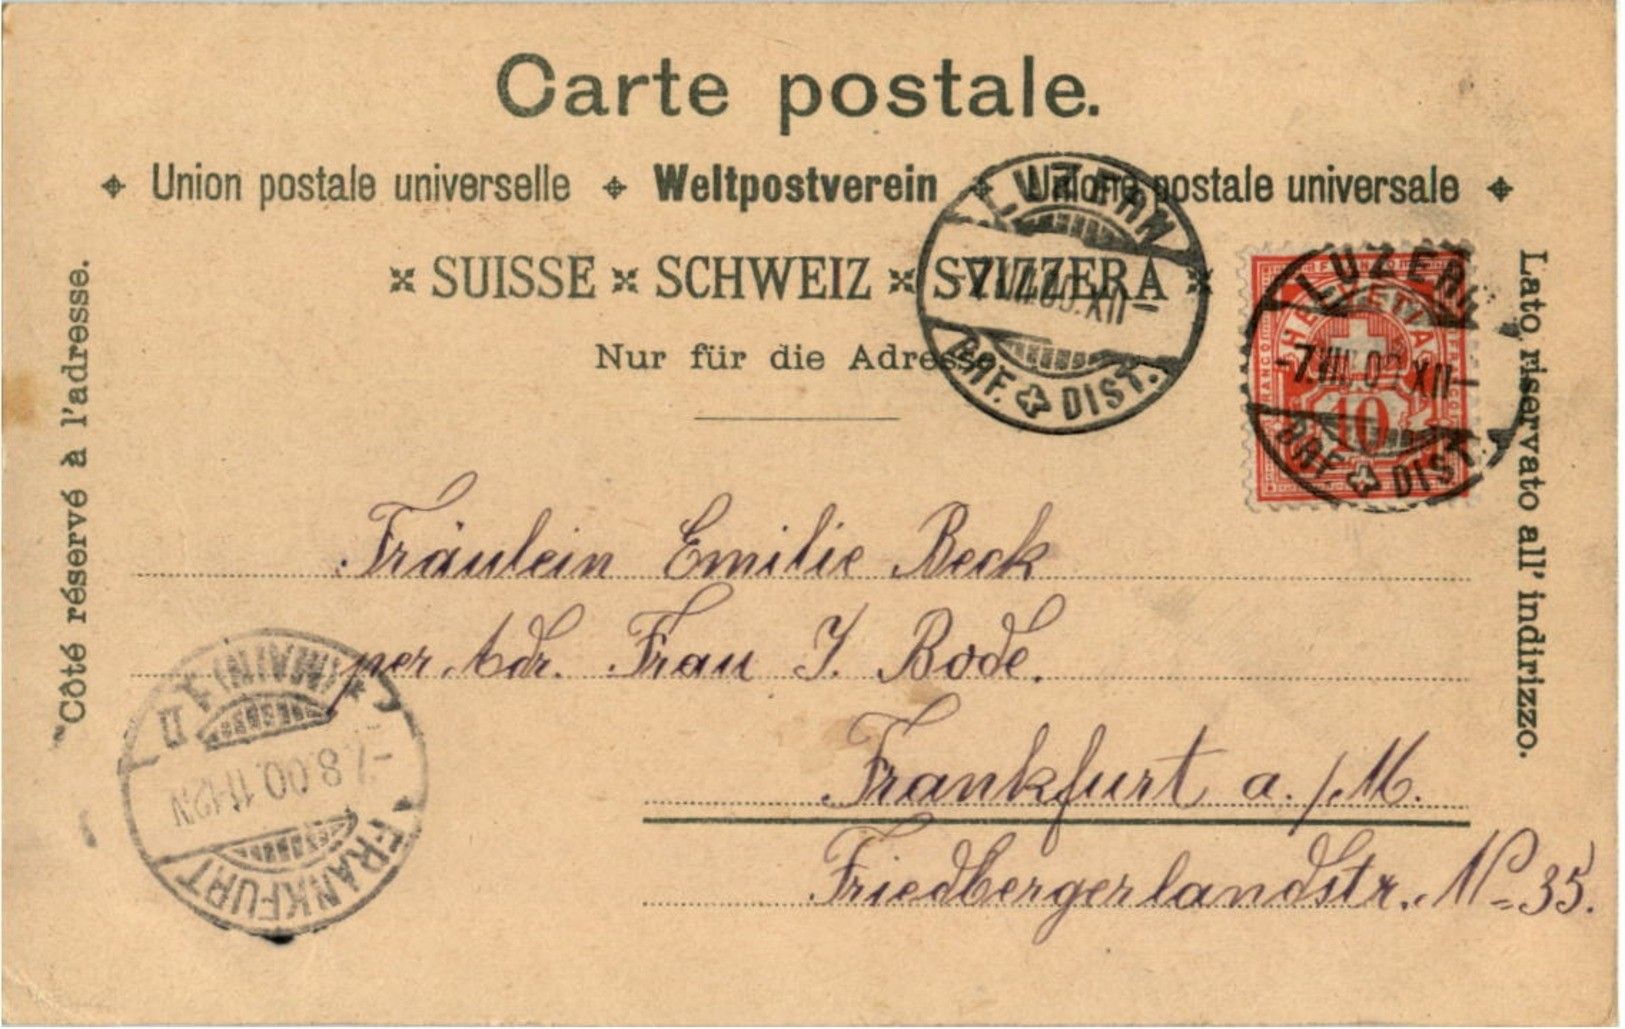 Carte postale.
Union postale universelle Weltpostverein Unione postale universale
SUISSE SCHWEIZ SVIZZERA
Nur für die Adresse
Côté réservé à l'adresse.
Lato riservato all' indirizzo.
LUZERN
-7.VIII.00.XII-
BRF. DIST.
FRANCO
HELVETIA
10
LUZERN
-7.VIII.00 XII-
BRF. DIST.
Fräulein Emilie Beck
per Adr. Frau J. Bode.
Frankfurt a./M.
Friedbergerlandstr. No 35.
FRANKFURT
7.8.00.11-12.V
(MAIN) 1